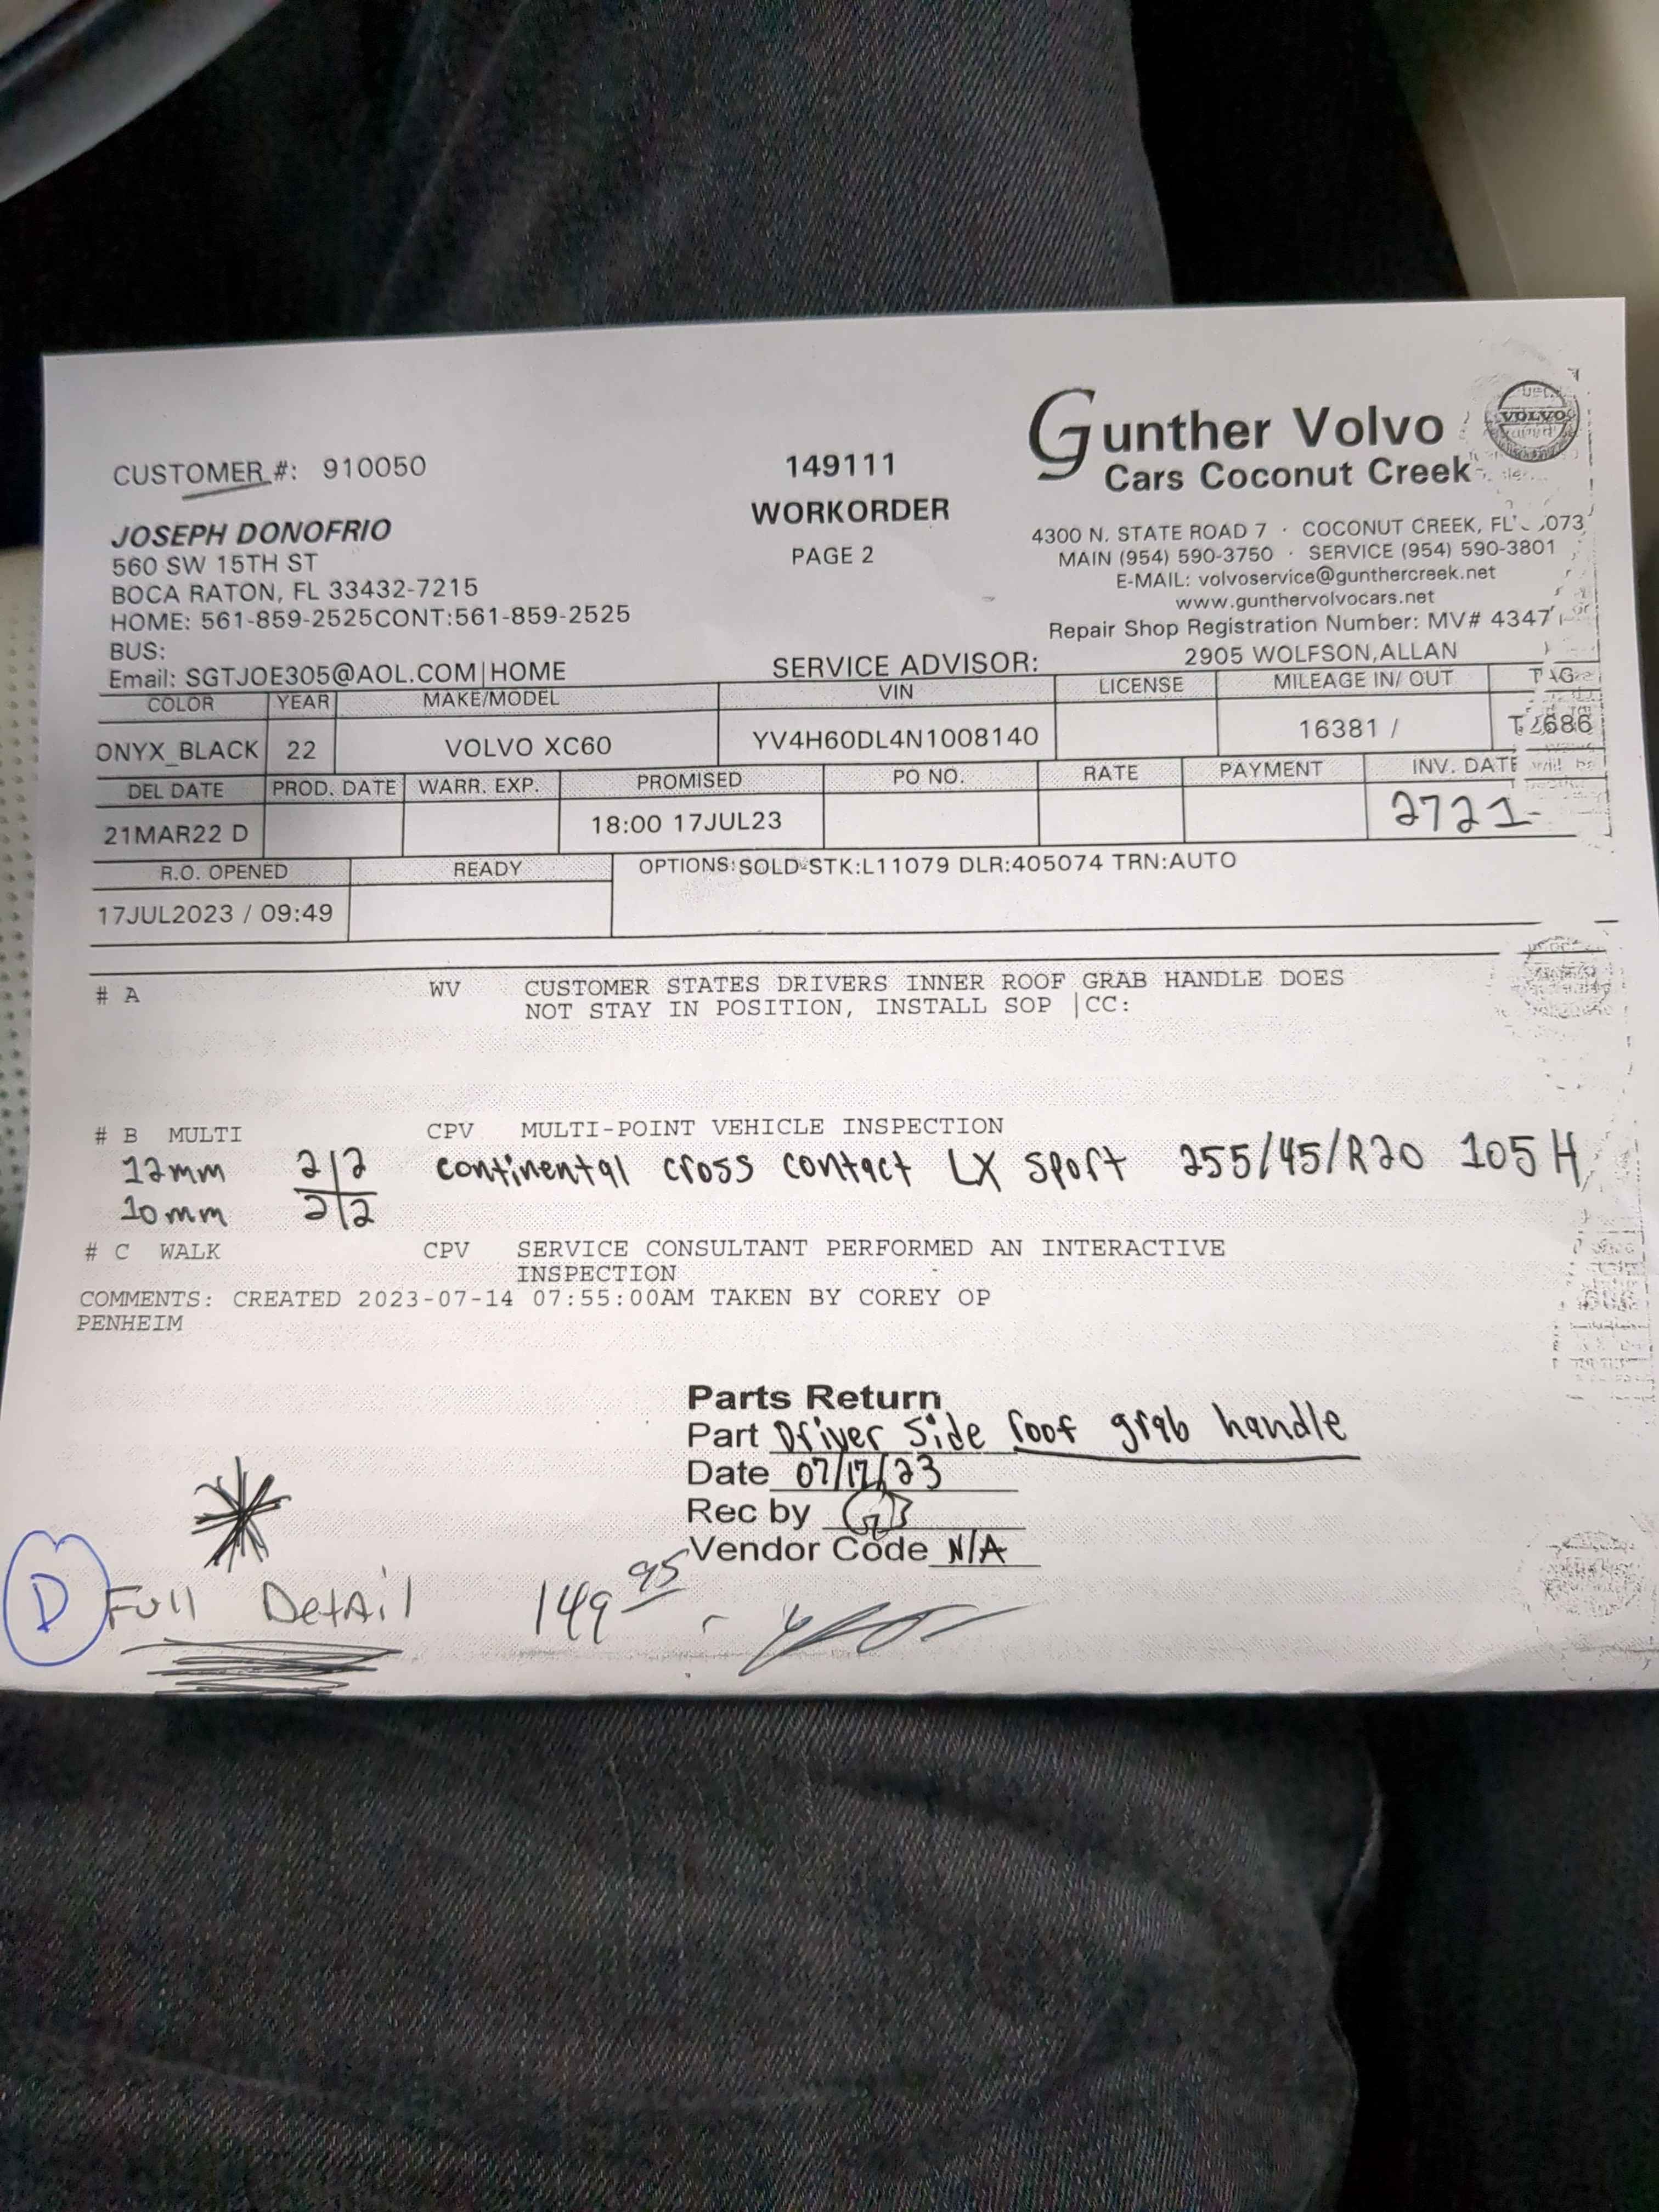 Gunther Volvo
Cars Coconut Creek
VOLVO
4300 N. STATE ROAD 7 · COCONUT CREEK, FL 073
MAIN (954) 590-3750 · SERVICE (954) 590-3801
E-MAIL: volvoservice@gunthercreek.net
www.gunthervolvocars.net
Repair Shop Registration Number: MV# 4347
CUSTOMER #: 910050
149111
WORKORDER
PAGE 2
JOSEPH DONOFRIO
560 SW 15TH ST
BOCA RATON, FL 33432-7215
HOME: 561-859-2525CONT:561-859-2525
BUS:
Email: SGTJOE305@AOL.COM|HOME
SERVICE ADVISOR: 2905 WOLFSON,ALLAN
COLOR YEAR MAKE/MODEL VIN LICENSE MILEAGE IN/ OUT TAG
ONYX_BLACK 22 VOLVO XC60 YV4H60DL4N1008140 16381 / T2686
DEL DATE PROD. DATE WARR. EXP. PROMISED PO NO. RATE PAYMENT INV. DATE
21MAR22 D 18:00 17JUL23 2721
R.O. OPENED READY OPTIONS:SOLD-STK:L11079 DLR:405074 TRN:AUTO
17JUL2023 / 09:49
# A WV CUSTOMER STATES DRIVERS INNER ROOF GRAB HANDLE DOES
NOT STAY IN POSITION, INSTALL SOP |CC:
# B MULTI CPV MULTI-POINT VEHICLE INSPECTION
12mm 2|2 continental cross contact LX sport 255/45/R20 105H
10mm 2|2
# C WALK CPV SERVICE CONSULTANT PERFORMED AN INTERACTIVE
INSPECTION
COMMENTS: CREATED 2023-07-14 07:55:00AM TAKEN BY COREY OP
PENHEIM
Parts Return
Part Driver Side roof grab handle
Date 07/17/23
Rec by
Vendor Code N/A
D Full Detail 149 95